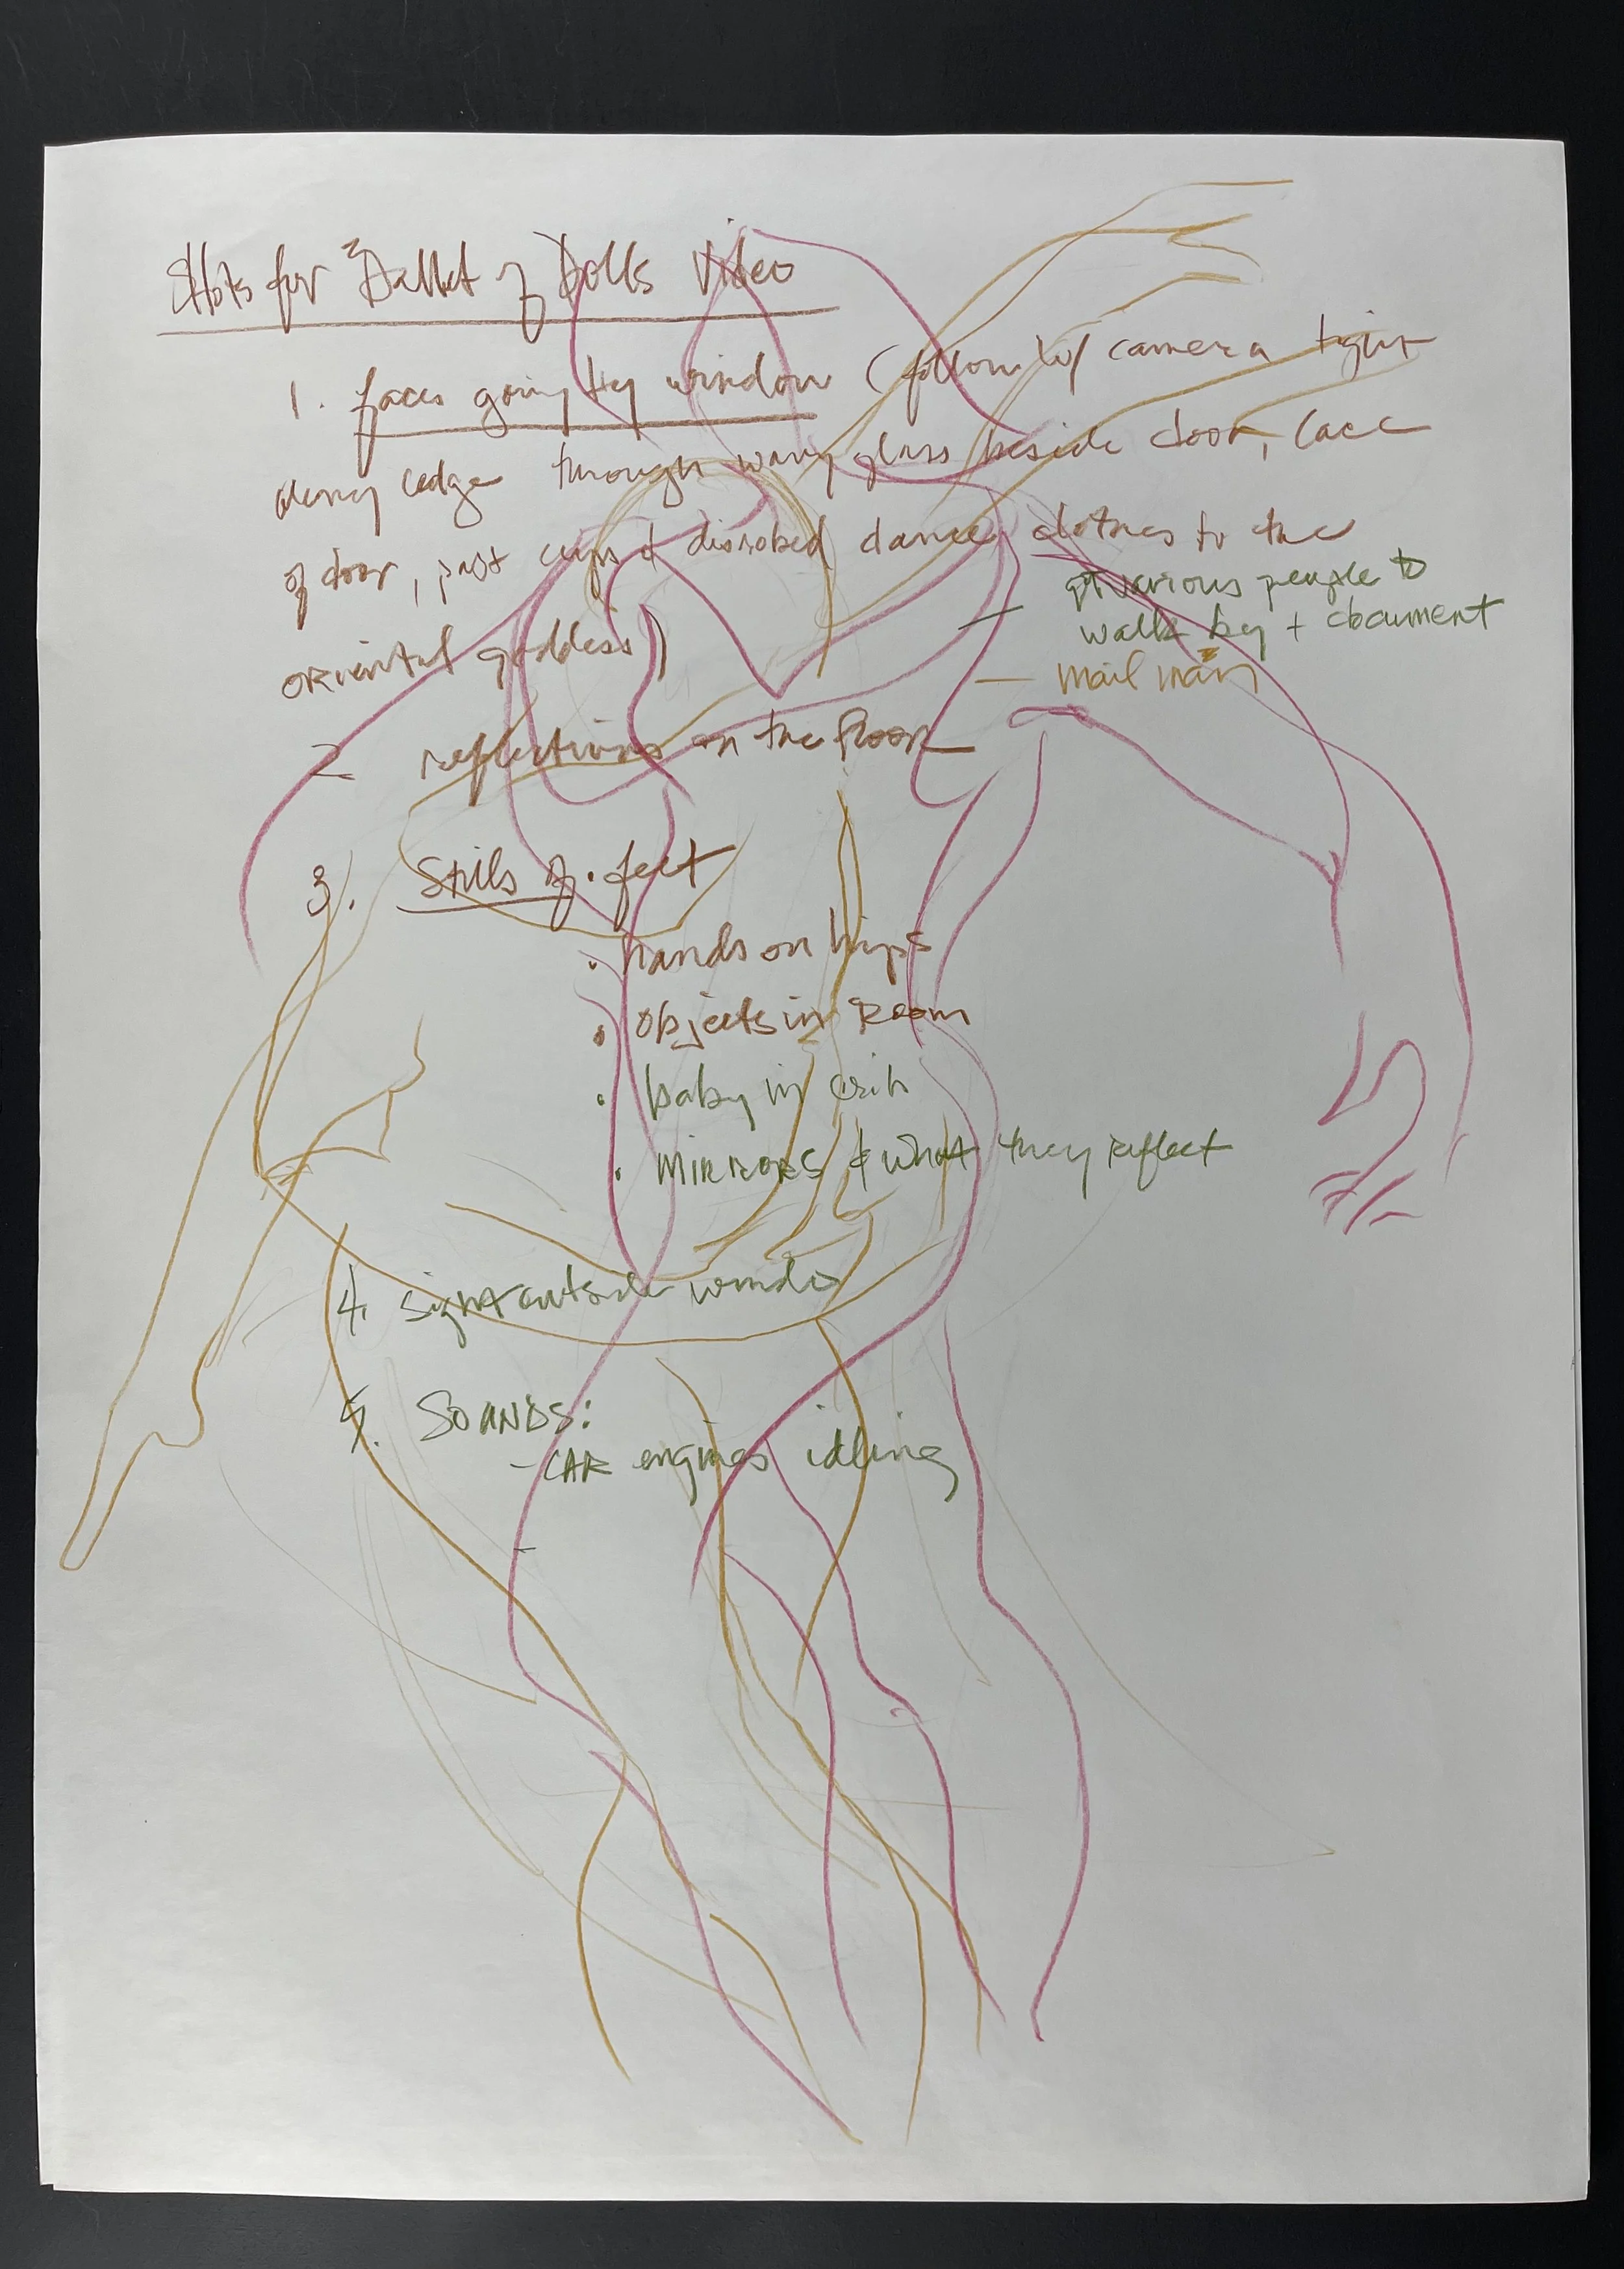 Shots for Ballet of Dolls Video
1. faces going by window (follow w/ camera tight
along edge through wavy glass beside door, lace
of door, past cups & disrobed dance clothes to the
oriental goddess)
— get various people to
walk by + document
— mail man
2 reflections on the floor —
3. Stills of • feet
• hands on hips
• objects in Room
• baby in crib
• MIRRORS & what they reflect
4. sign outside window
5. SOUNDS:
- CAR engines idling